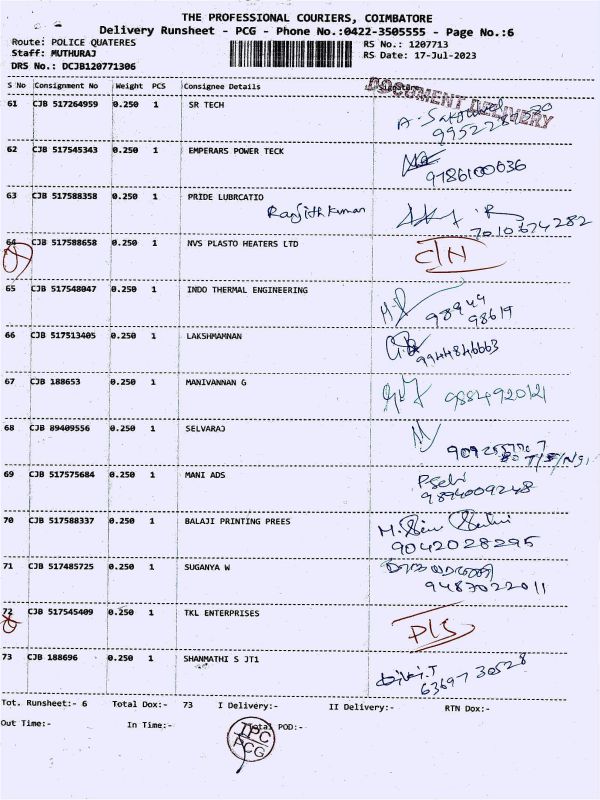 THE PROFESSIONAL COURIERS, COIMBATORE
Delivery Runsheet - PCG - Phone No.:0422-3505555 - Page No.:6
Route: POLICE QUATERES RS No.: 1207713
Staff: MUTHURAJ RS Date: 17-Jul-2023
DRS No.: DCJB120771306
S No Consignment No Weight PCS Consignee Details Signature
DOCUMENT DELIVERY
61 CJB 517264959 0.250 1 SR TECH
62 CJB 517545343 0.250 1 EMPERARS POWER TECK
9786100636
63 CJB 517588358 0.250 1 PRIDE LUBRCATIO
Ranjith kumar
7010674282
64 CJB 517588658 0.250 1 NVS PLASTO HEATERS LTD
C/N
65 CJB 517548047 0.250 1 INDO THERMAL ENGINEERING
98944
98619
66 CJB 517513405 0.250 1 LAKSHMAMNAN
9944846663
67 CJB 188653 0.250 1 MANIVANNAN G
9884920121
68 CJB 89409556 0.250 1 SELVARAJ
69 CJB 517575684 0.250 1 MANI ADS
9894009248
70 CJB 517588337 0.250 1 BALAJI PRINTING PREES
9042028295
71 CJB 517485725 0.250 1 SUGANYA W
9487022011
72 CJB 517545409 0.250 1 TKL ENTERPRISES
D/S
73 CJB 188696 0.250 1 SHANMATHI S JT1
6369730528
Tot. Runsheet:- 6 Total Dox:- 73 I Delivery:- II Delivery:- RTN Dox:-
Out Time:- In Time:- Total POD:-
TPC
PCG